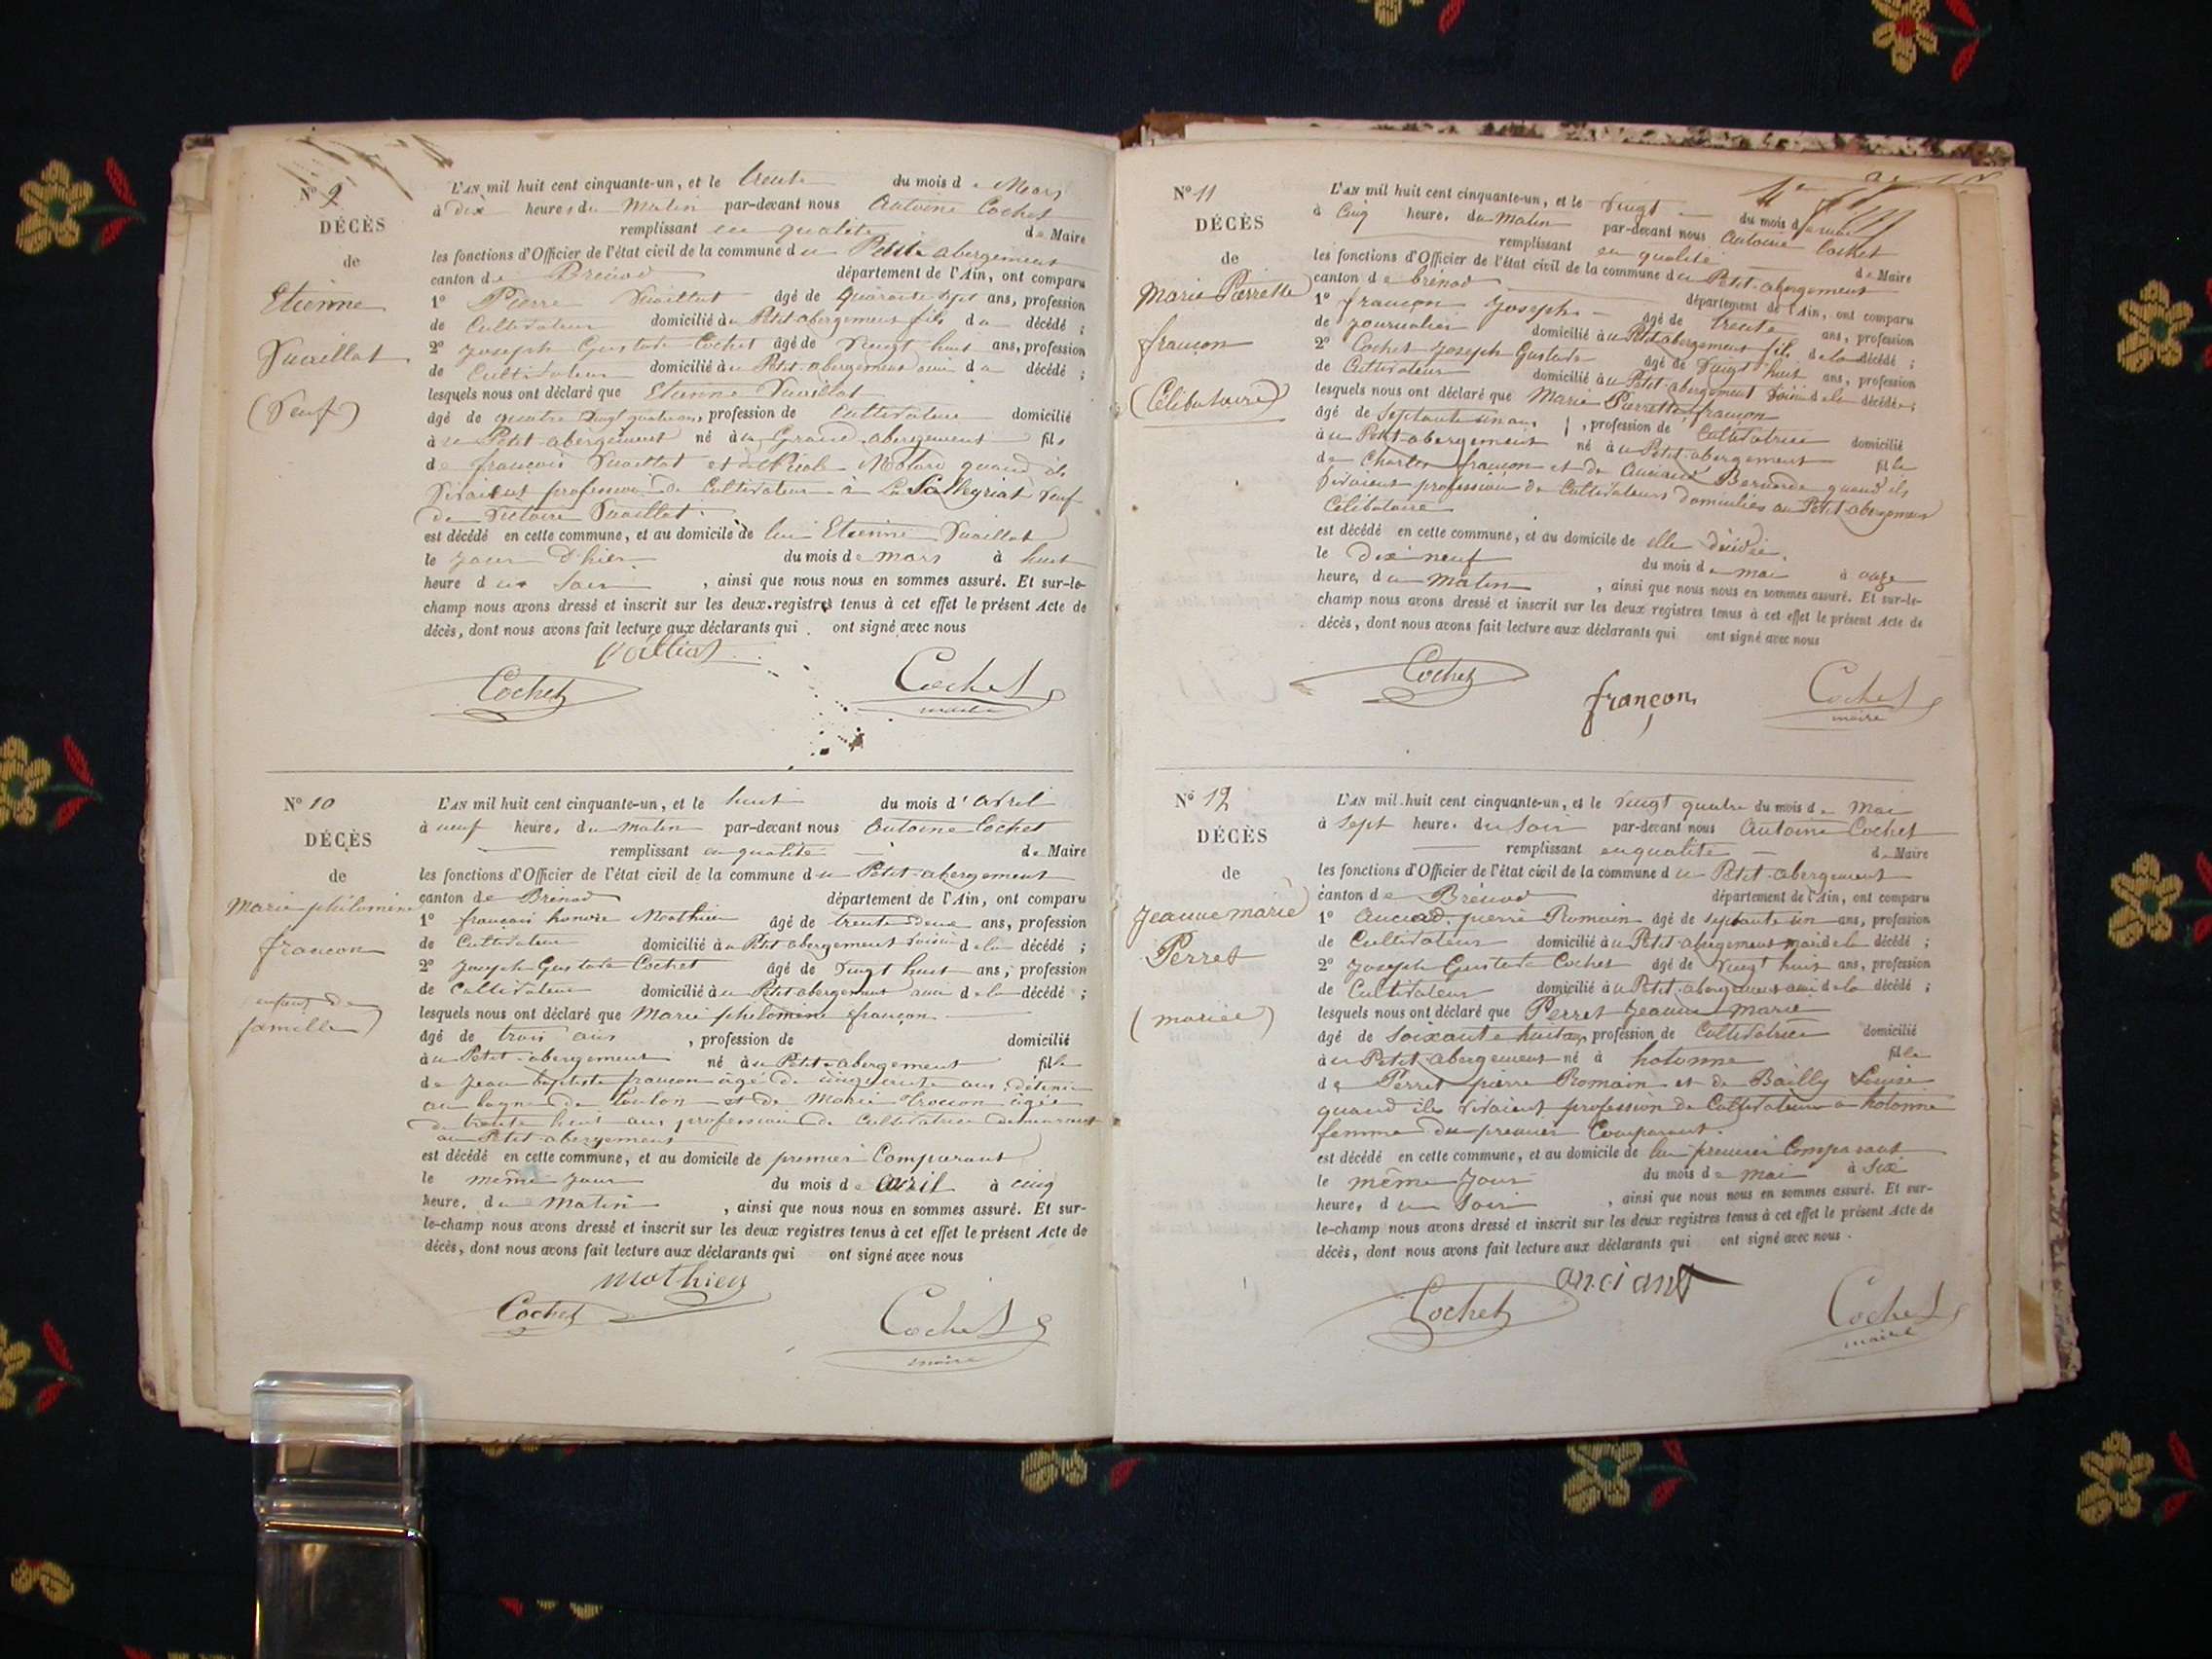 N° 9
DÉCÈS
de
Etienne
Vuaillat
(Veuf)
L'AN mil huit cent cinquante-un, et le trente du mois de Mars
à dix heures du Matin par-devant nous Antoine Cochet
remplissant en qualité de Maire
les fonctions d'Officier de l'état civil de la commune du Petit-abergement
canton de Brénod département de l'Ain, ont comparu
1° Pierre Vuaillat âgé de quarante sept ans, profession
de Cultivateur domicilié au Petit abergement fils du décédé ;
2° Joseph Gustave Cochet âgé de Vingt huit ans, profession
de Cultivateur domicilié au Petit abergement ami du décédé ;
lesquels nous ont déclaré que Etienne Vuaillat
âgé de quatre Vingt quatre ans, profession de Cultivateur domicilié
au Petit-abergement né au Grand abergement fils
de françois Vuaillat et de Nicole Molard quand ils
Vivaient profession de Cultivateur à Veuf
de Victoire Vuaillat.
est décédé en cette commune, et au domicile de lui Etienne Vuaillat
le jour D'hier du mois de mars à huit
heure du Soir, ainsi que nous nous en sommes assuré. Et sur-le-
champ nous avons dressé et inscrit sur les deux registres tenus à cet effet le présent Acte de
décès, dont nous avons fait lecture aux déclarants qui ont signé avec nous
Cochet Cochet
maire
N° 10
DÉCÈS
de
Marie philomène
françon
enfant de
famille)
L'AN mil huit cent cinquante-un, et le huit du mois d'avril
à neuf heures du matin par-devant nous Antoine Cochet
remplissant en qualité de Maire
les fonctions d'Officier de l'état civil de la commune du Petit-abergement
canton de Brénod département de l'Ain, ont comparu
1° françois honoré Mathieu âgé de trente deux ans, profession
de Cultivateur domicilié au Petit abergement voisin de la décédé ;
2° Joseph Gustave Cochet âgé de Vingt huit ans, profession
de Cultivateur domicilié au Petit abergement ami de la décédé ;
lesquels nous ont déclaré que Marie philomène françon
âgé de trois ans, profession de domicilié
au Petit-abergement né au Petit-abergement fille
de Jean baptiste françon âgé de cinquante ans détenu
au bagne de toulon et de Marie âgée
de trente huit ans profession de Cultivatrice demeurant
au Petit-abergement
est décédé en cette commune, et au domicile de premier Comparant
le même jour du mois de avril à cinq
heure, du Matin, ainsi que nous nous en sommes assuré. Et sur-
le-champ nous avons dressé et inscrit sur les deux registres tenus à cet effet le présent Acte de
décès, dont nous avons fait lecture aux déclarants qui ont signé avec nous
mathieu
Cochet Cochet
maire
N° 11
DÉCÈS
de
Marie Pierrette
françon
(Célibataire)
L'AN mil huit cent cinquante-un, et le Vingt du mois de mai
à Cinq heure, du matin par-devant nous Antoine Cochet
remplissant en qualité de Maire
les fonctions d'Officier de l'état civil de la commune du Petit-abergement
canton de brénod département de l'Ain, ont comparu
1° françon Joseph âgé de trente ans, profession
de Journalier domicilié au Petit abergement fils de la décédé ;
2° Cochet Joseph Gustave âgé de Vingt huit ans, profession
de Cultivateur domicilié au Petit-abergement Voisin de la décédée ;
lesquels nous ont déclaré que Marie Pierrette françon
âgé de Septante un ans, profession de Cultivatrice domicilié
au Petit-abergement né au Petit-abergement fille
de Charles françon et de Bernarde quand ils
Vivaient profession de Cultivateurs domiciliés au Petit abergement
Célibataire
est décédé en cette commune, et au domicile de elle décédée.
le dix neuf du mois de mai à onze
heure, du matin, ainsi que nous nous en sommes assuré. Et sur-le-
champ nous avons dressé et inscrit sur les deux registres tenus à cet effet le présent Acte de
décès, dont nous avons fait lecture aux déclarants qui ont signé avec nous
Cochet françon Cochet
maire
N° 12
DÉCÈS
de
Jeanne marie
Perret
(mariée)
L'AN mil huit cent cinquante-un, et le Vingt quatre du mois de Mai
à Sept heure, du Soir par-devant nous Antoine Cochet
remplissant en qualité de Maire
les fonctions d'Officier de l'état civil de la commune du Petit-abergement
canton de Brénod département de l'Ain, ont comparu
1° pierre Romain âgé de septante un ans, profession
de Cultivateur domicilié au Petit abergement mari de la décédé ;
2° Joseph Gustave Cochet âgé de Vingt huit ans, profession
de Cultivateur domicilié au Petit-abergement ami de la décédé ;
lesquels nous ont déclaré que Perret Jeanne Marie
âgé de Soixante huit ans, profession de Cultivatrice domicilié
au Petit abergement né à hotonne fille
de Perret pierre Romain et de Bailly Louise
quand ils vivaient profession de Cultivateurs a hotonne
femme du premier Comparant.
est décédé en cette commune, et au domicile de lui premier Comparant
le même Jour du mois de mai à Six
heure, du Soir, ainsi que nous nous en sommes assuré. Et sur-
le-champ nous avons dressé et inscrit sur les deux registres tenus à cet effet le présent Acte de
décès, dont nous avons fait lecture aux déclarants qui ont signé avec nous.
Cochet Cochet
maire